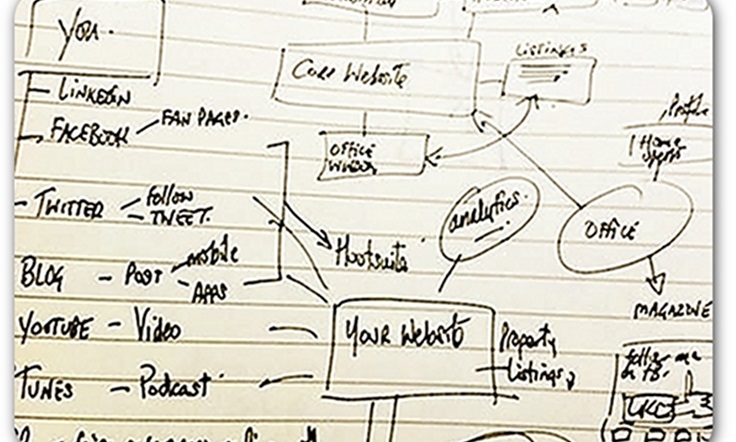 You.
LINKEDIN
FACEBOOK – FAN PAGES.
TWITTER – follow
– TWEET.
BLOG – POST mobile
– APPS
YOUTUBE – Video
iTUNES – Podcast
Core Website
LISTINGS
OFFICE
Hootsuite
analytics.
OFFICE
Profile
Home
MAGAZINE
YOUR Website
Property
Listings
follow me
on FB.
LIKE